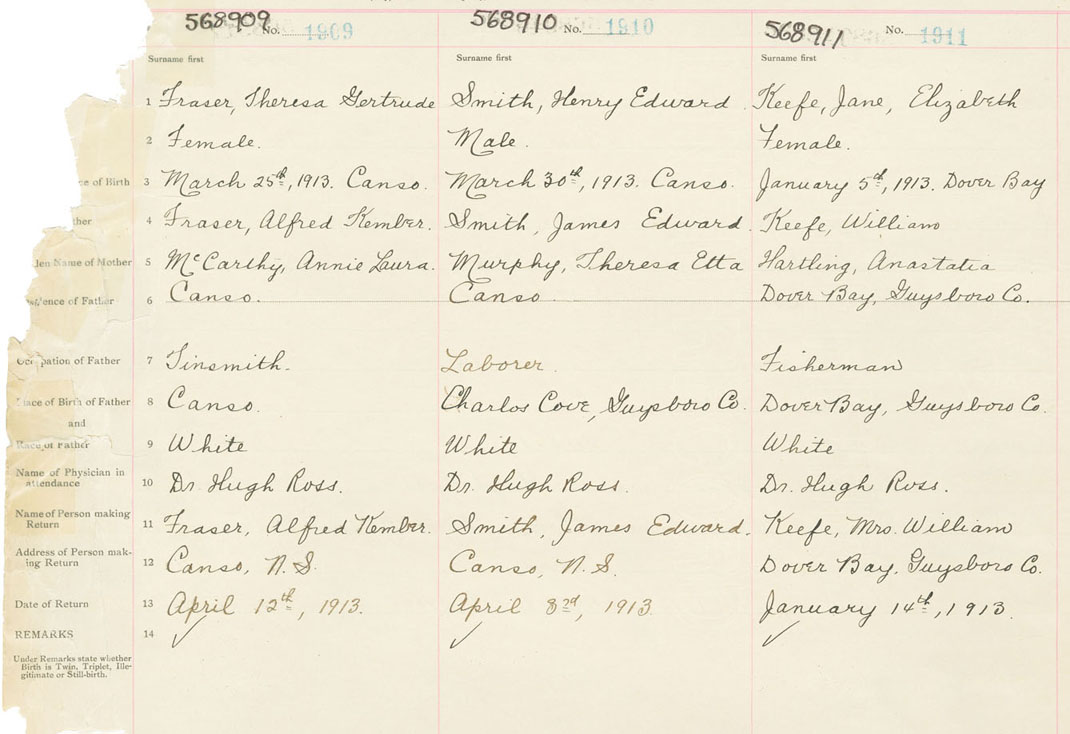 568909 No. 1909 568910 No. 1910 568911 No. 1911
Surname first Surname first Surname first
1 Fraser, Theresa Gertrude Smith, Henry Edward Keefe, Jane, Elizabeth
2 Female. Male. Female.
ce of Birth 3 March 25th, 1913. Canso. March 30th, 1913. Canso. January 5th, 1913. Dover Bay
ther 4 Fraser, Alfred Kember. Smith, James Edward. Keefe, William
den Name of Mother 5 McCarthy, Annie Laura. Murphy, Theresa Etta Hartling, Anastatia
idence of Father 6 Canso. Canso Dover Bay, Guysboro Co.
Occupation of Father 7 Tinsmith. Laborer. Fisherman
Place of Birth of Father 8 Canso. Charlos Cove, Guysboro Co. Dover Bay, Guysboro Co.
and
Race of Father 9 White White White
Name of Physician in
attendance 10 Dr. Hugh Ross. Dr. Hugh Ross. Dr. Hugh Ross.
Name of Person making
Return 11 Fraser, Alfred Kember. Smith, James Edward. Keefe, Mrs. William
Address of Person mak-
ing Return 12 Canso, N.S. Canso, N.S. Dover Bay, Guysboro Co.
Date of Return 13 April 12th, 1913. April 1913 January 14th, 1913.
REMARKS 14 ✓ ✓ ✓
Under Remarks state whether
Birth is Twin, Triplet, Ille-
gitimate or Still-birth.